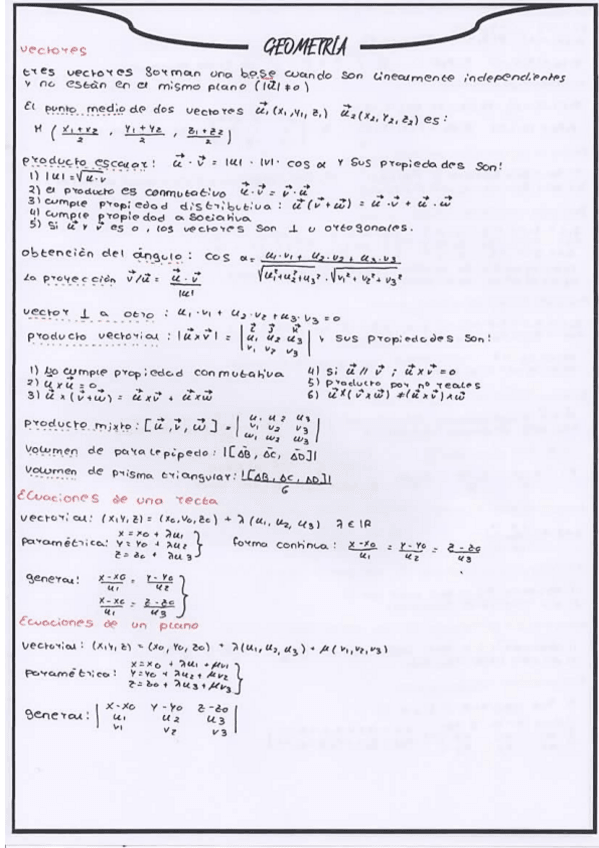 GEOMETRÍA
vectores
tres vectores forman una base cuando son linealmente independientes
y no están en el mismo plano (|u| ≠ 0)
El punto medio de dos vectores u⃗₁(x₁,y₁,z₁) u⃗₂(x₂,y₂,z₂) es:
M ( (x₁+x₂)/2 , (y₁+y₂)/2 , (z₁+z₂)/2 )
producto escalar: u⃗ · v⃗ = |u| · |v| · cos α y sus propiedades son:
1) |u| = √u·v
2) el producto es conmutativo u⃗·v⃗ = v⃗·u⃗
3) cumple propiedad distributiva: u⃗(v⃗+w⃗) = u⃗·v⃗ + u⃗·w⃗
4) cumple propiedad asociativa
5) si u⃗ y v⃗ es 0, los vectores son ⊥ u ortogonales.
obtención del ángulo: cos α = (u₁·v₁ + u₂·v₂ + u₃·v₃) / (√u₁²+u₂²+u₃² · √v₁²+v₂²+v₃²)
La proyección v⃗/u⃗ = (u⃗·v⃗)/|u|
vector ⊥ a otro: u₁·v₁ + u₂·v₂ + u₃·v₃ = 0
producto vectorial: |u⃗xv⃗| = | i j k ; u₁ u₂ u₃ ; v₁ v₂ v₃ | y sus propiedades son:
1) No cumple propiedad conmutativa
2) u⃗xu⃗ = 0
3) u⃗x(v⃗+w⃗) = u⃗xv⃗ + u⃗xw⃗
4) si u⃗ // v⃗ ; u⃗xv⃗ = 0
5) producto por nº reales
6) u⃗x(v⃗xw⃗) ≠ (u⃗xv⃗)xw⃗
producto mixto: [u⃗,v⃗,w⃗] = | u₁ u₂ u₃ ; v₁ v₂ v₃ ; w₁ w₂ w₃ |
volumen de paralepípedo: |[AB, AC, AD]|
volumen de prisma triangular: |[AB, AC, AD]|/6
Ecuaciones de una recta
vectorial: (x,y,z) = (x₀,y₀,z₀) + λ(u₁,u₂,u₃) λ∈ℝ
paramétrica: x = x₀ + λu₁
y = y₀ + λu₂
z = z₀ + λu₃ }
forma continua: (x-x₀)/u₁ = (y-y₀)/u₂ = (z-z₀)/u₃
general: (x-x₀)/u₁ = (y-y₀)/u₂
(x-x₀)/u₁ = (z-z₀)/u₃ }
Ecuaciones de un plano
vectorial: (x,y,z) = (x₀,y₀,z₀) + λ(u₁,u₂,u₃) + μ(v₁,v₂,v₃)
paramétrica: x = x₀ + λu₁ + μv₁
y = y₀ + λu₂ + μv₂
z = z₀ + λu₃ + μv₃ }
general: | x-x₀ y-y₀ z-z₀ ; u₁ u₂ u₃ ; v₁ v₂ v₃ |